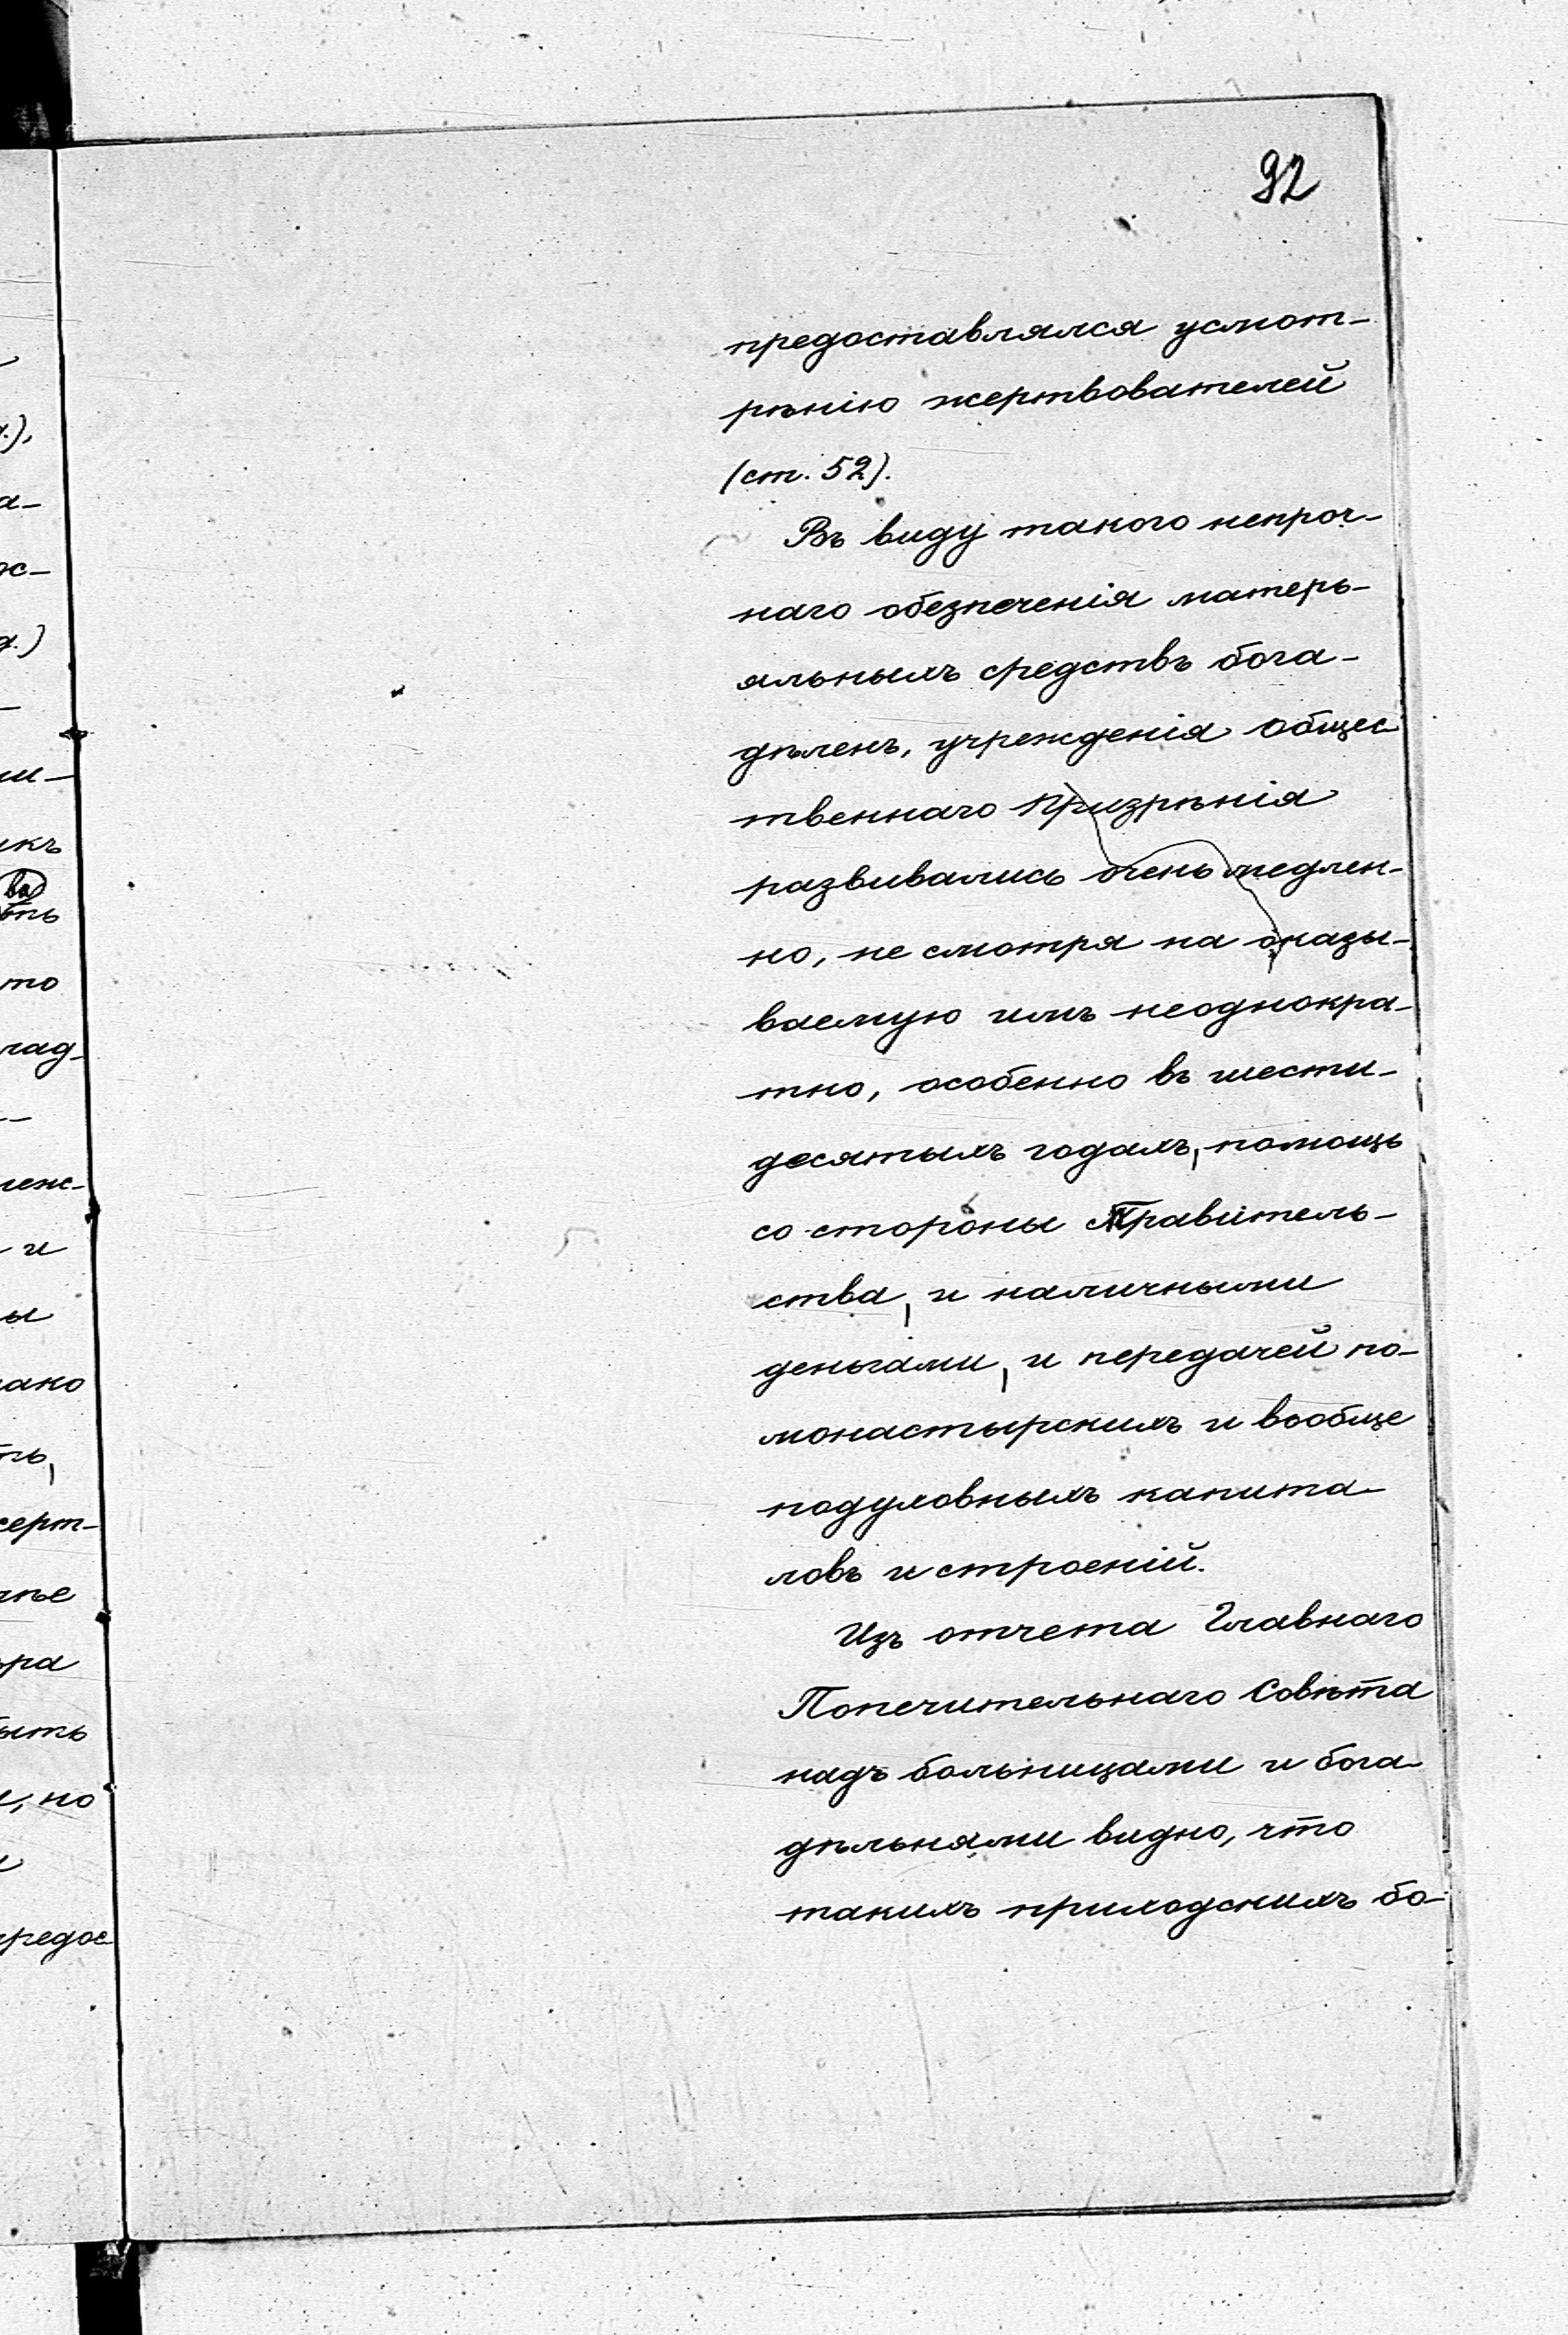 92
предоставлялся усмот-
рѣнію жертвователей
(ст. 52).
Въ виду такого непроч-
наго обезпеченія матерь-
яльныхъ средствъ бога-
дѣленъ, учрежденія общес
твеннаго призрѣнія
развивались очень медлен-
но, не смотря на оказы-
ваемую имъ неоднокра-
тно, особенно въ шести-
десятыхъ годахъ, помощь
со стороны Правитель-
ства, и наличными
деньгами, и передачей по-
монастырскихъ и вообще
подуховныхъ капита-
ловъ и строеній.
Изъ отчета Главнаго
Попечительнаго Совѣта
надъ больницами и бога-
дѣльнями видно, что
такихъ приходскихъ бо-